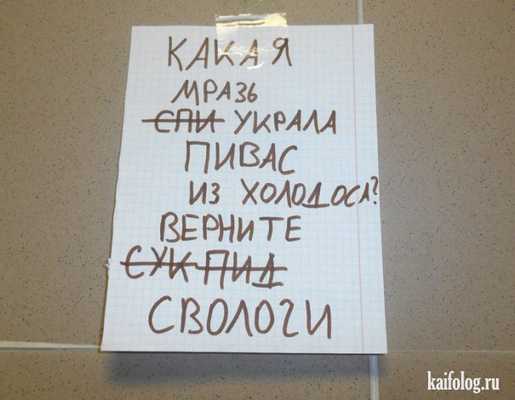 КАКАЯ
МРАЗЬ
СПИ УКРАЛА
ПИВАС
ИЗ ХОЛОДОСА?
ВЕРНИТЕ
СУК ПИД
СВОЛОГИ
kaifolog.ru